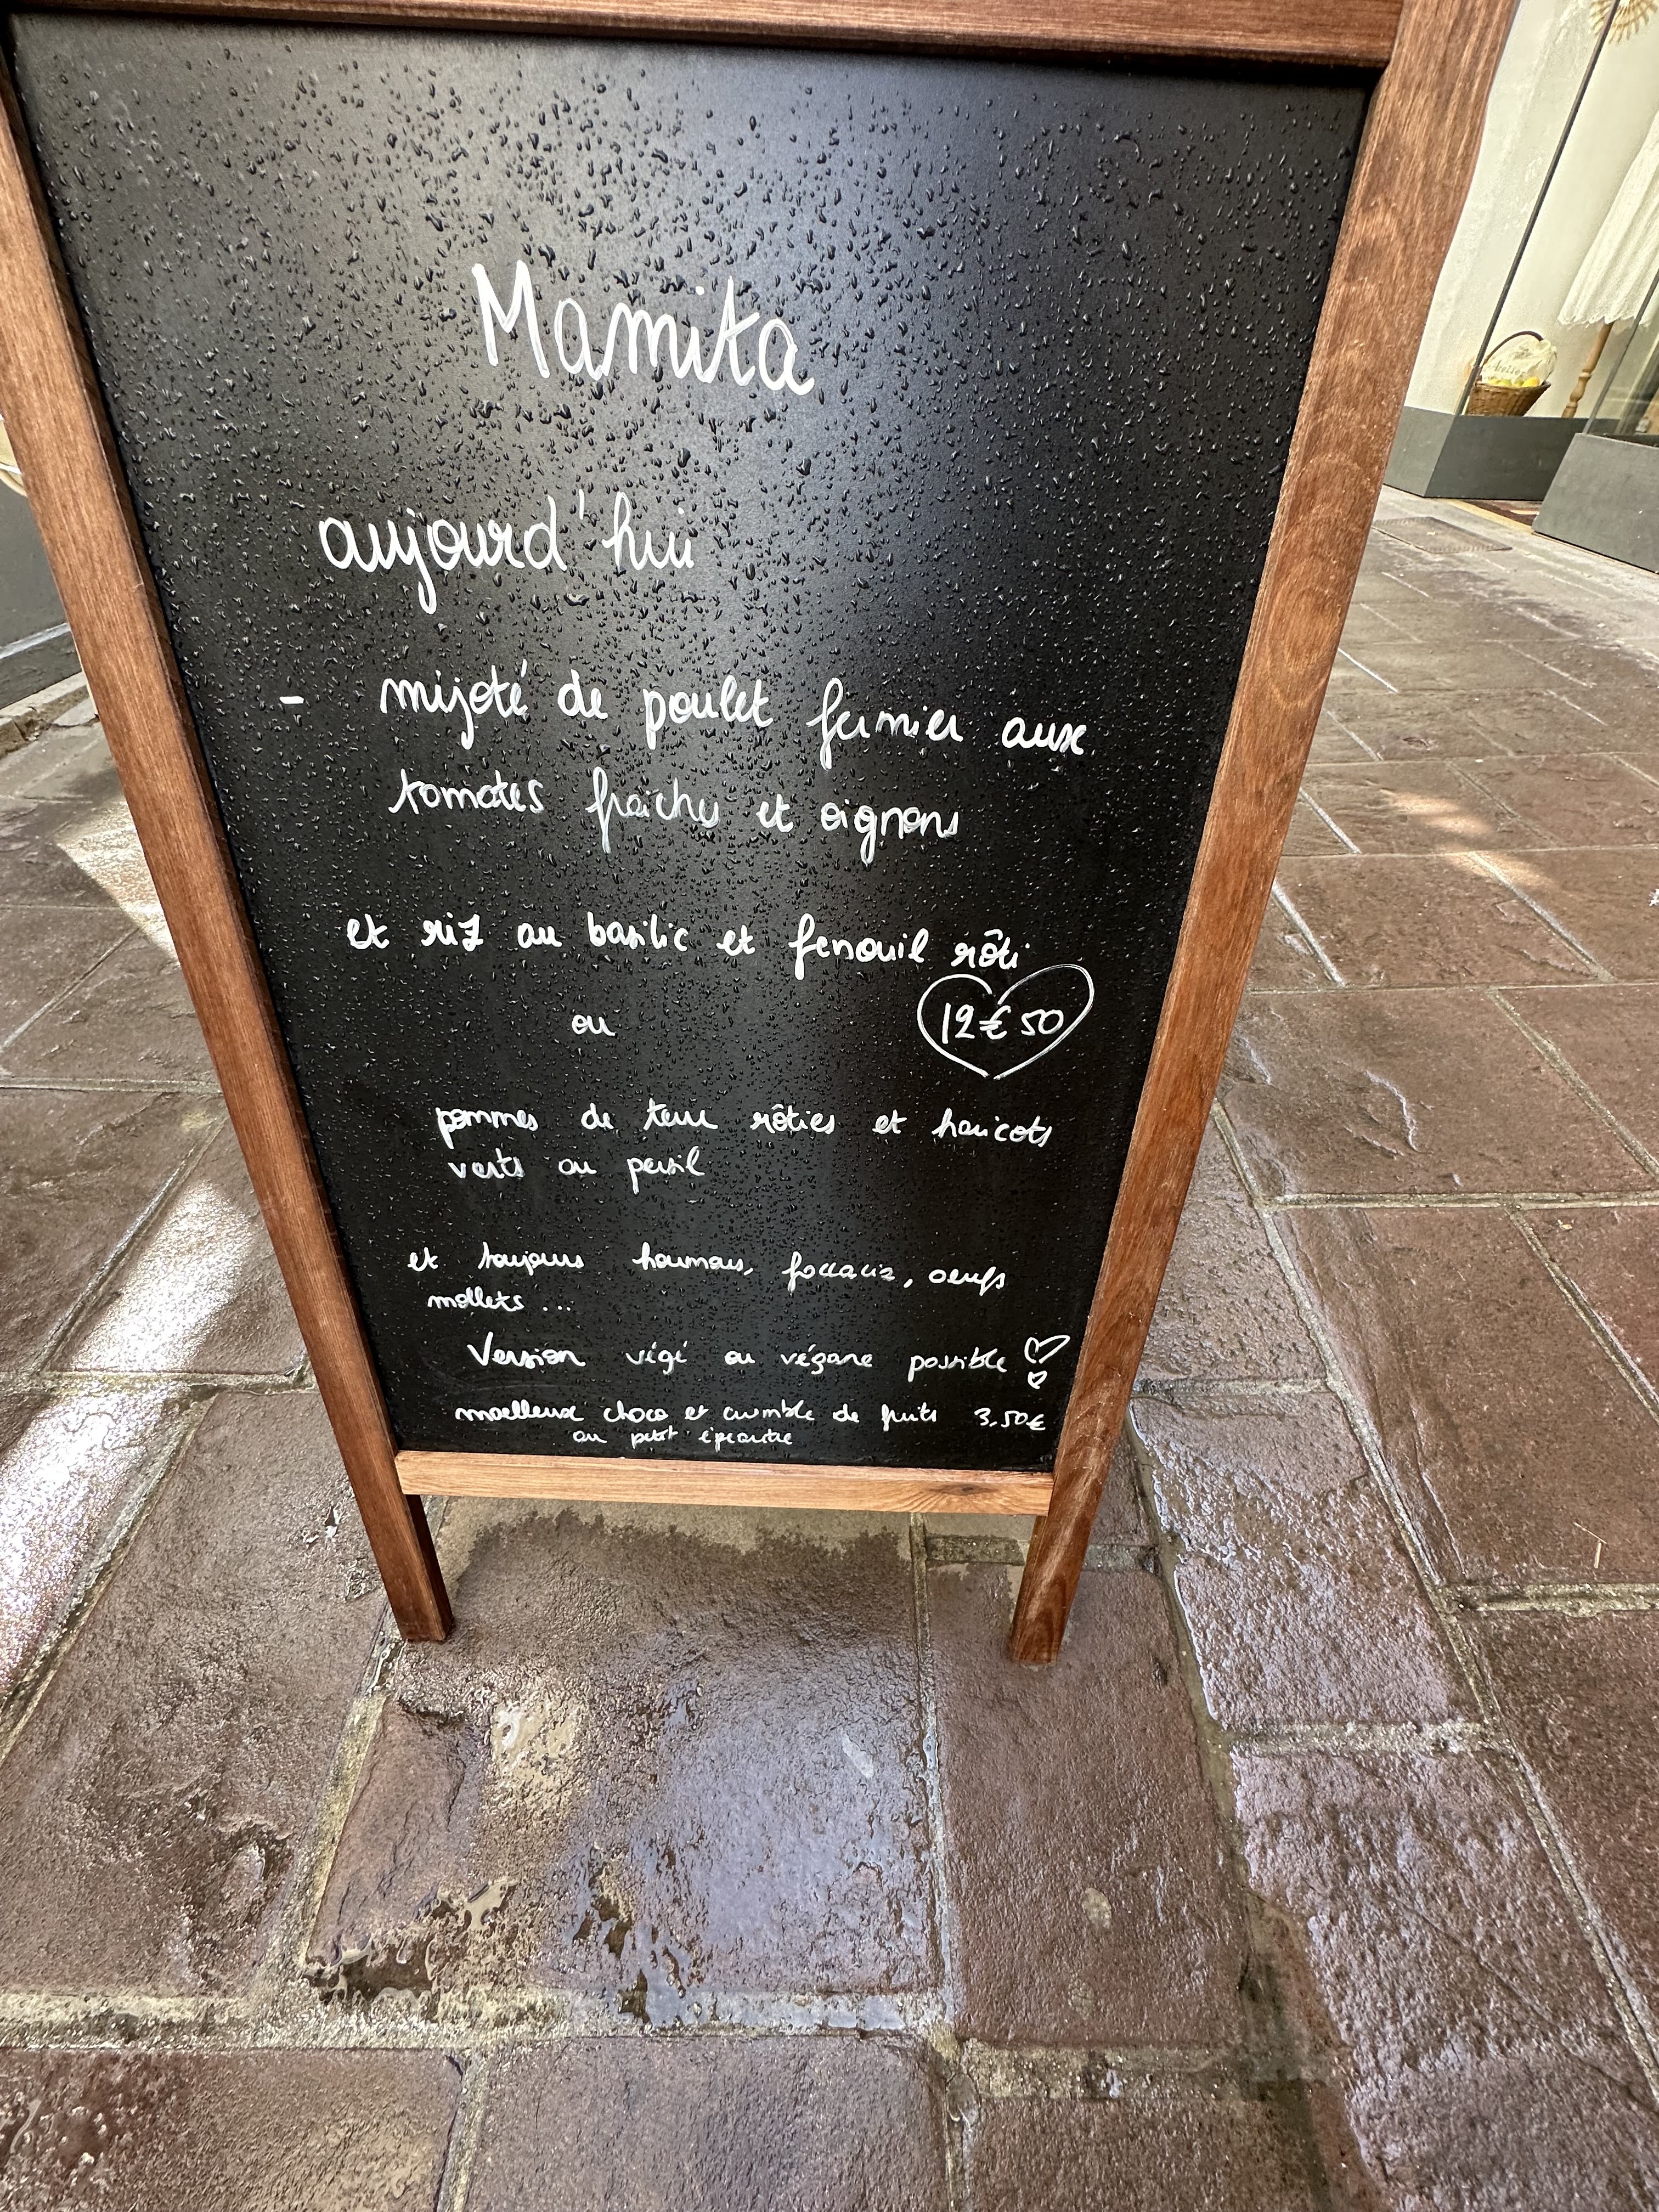 Mamita
aujourd'hui
- mijoté de poulet fermier aux
tomates fraîches et oignons
et riz au basilic et fenouil rôti
12€50
ou
pommes de terre rôties et haricots
verts au persil
et toujours houmous, focaccia, oeufs
mollets ...
Version végé ou végane possible !
moelleux choco et crumble de fruits 3.50€
au petit épeautre